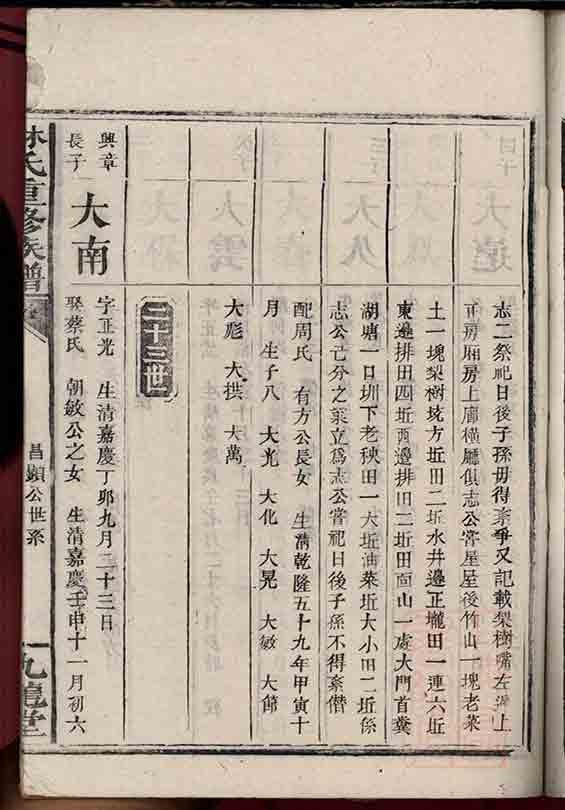 志二祭祀日後子孫毋得紊爭又記載梨樹嘴左邊上
正房厢房上廊橫廳俱志公嘗屋屋後竹山一塊老菜
土一塊梨樹坑方坵田二坵水井邊正壠田一連六坵
東邊排田四坵西邊排田二坵田面山一處大門首糞
湖塘一口圳下老秧田一大坵油菜坵大小田二坵係
志公己分之業立為志公嘗祀日後子孫不得紊僭
配周氏 有方公長女 生清乾隆五十九年甲寅十
月 生子八 大光 大化 大晃 大敏 大節
大彪 大拱 大萬
二十三世
興章
長子
大南
字正光 生清嘉慶丁卯九月二十三日
娶蔡氏 朝敏公之女 生清嘉慶壬申十一月初六
林氏重修族譜
昌顯公世系
九龍堂